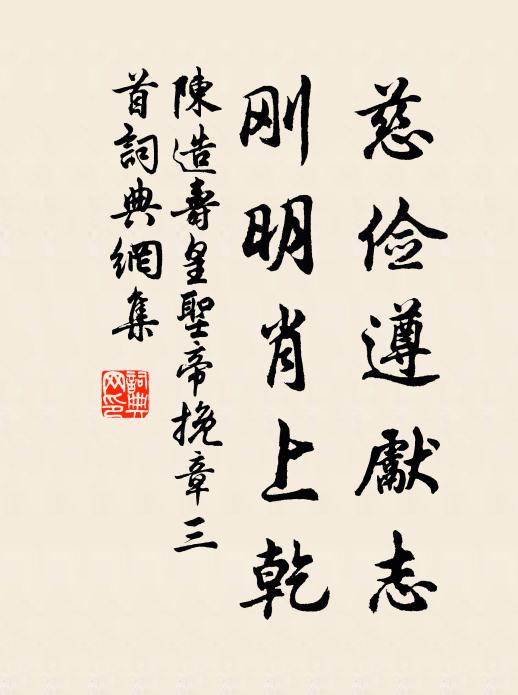 慈俭遵獻志
刚明肖上乾
陳造壽皇聖帝挽章三
首詞典網集
詞典網印